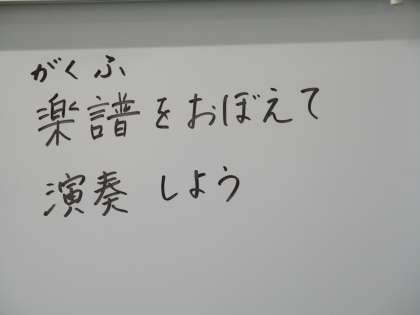 がくふ
楽譜をおぼえて
演奏しよう